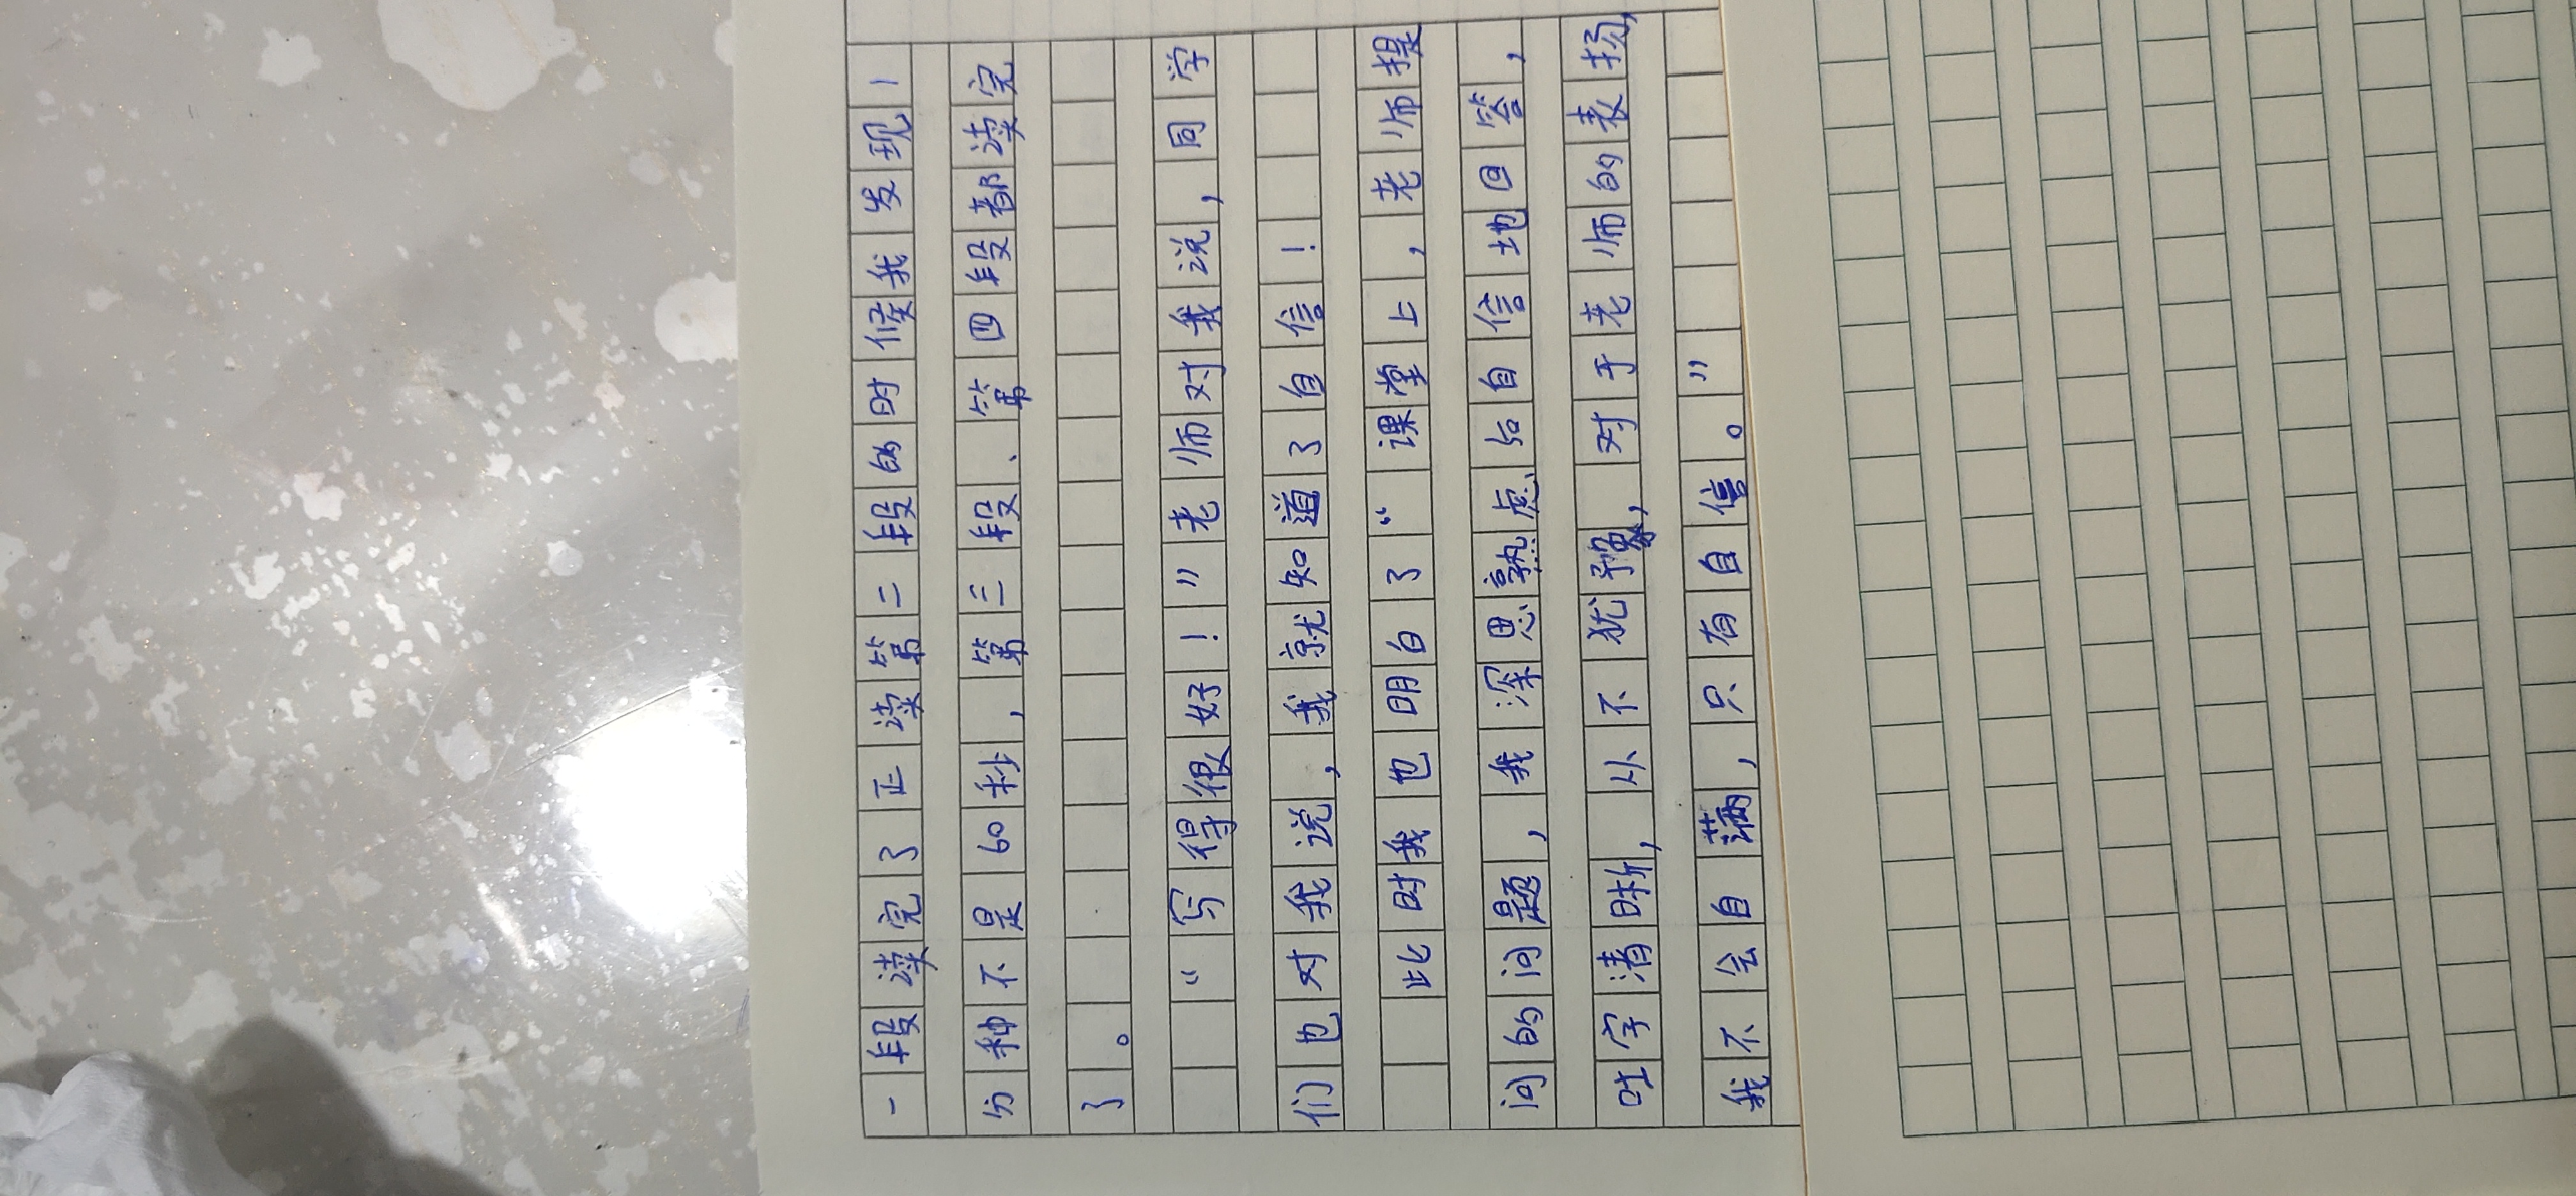 一段读完了正读第二段的时候我发现1
分种不是60秒，第三段、第四段都读完
了。
“写得很好！”老师对我说，同学
们也对我说，我就知道了自信！
此时我也明白了“课堂上，老师提
问的问题，我深思熟虑后自信地回答，
吐字清晰，从不犹豫，对于老师的表扬，
我不会自满，只有自信。”